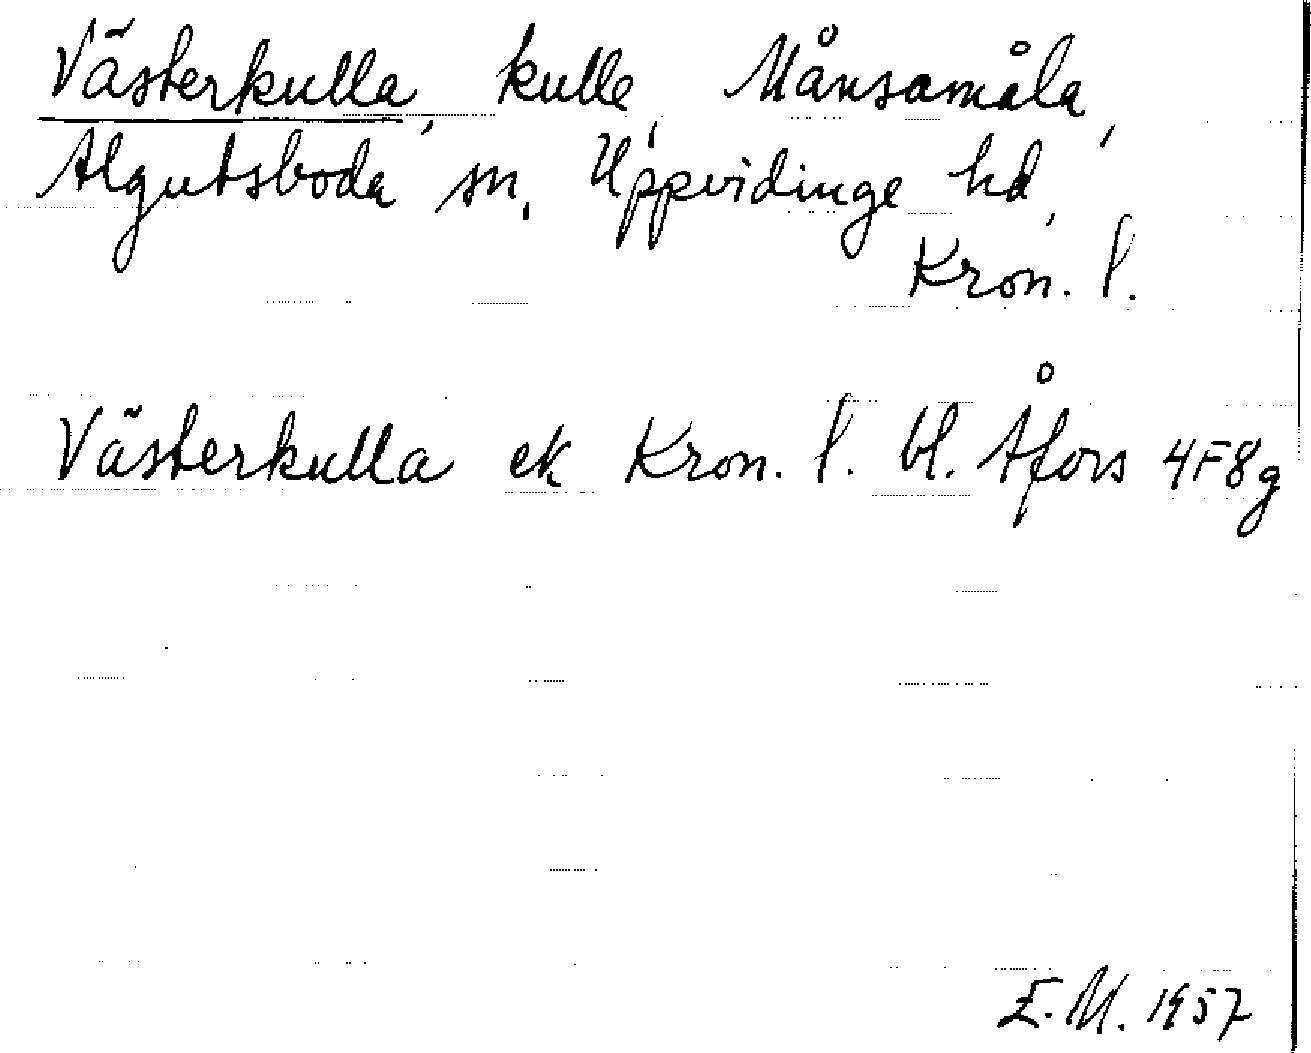 Västerkulla, kulle, Månsamåla,
Algutsboda sn, Uppvidinge hd,
Kron. l.
Västerkulla ek Kron. l. bl. Åfors 4F8g
E.M. 1957